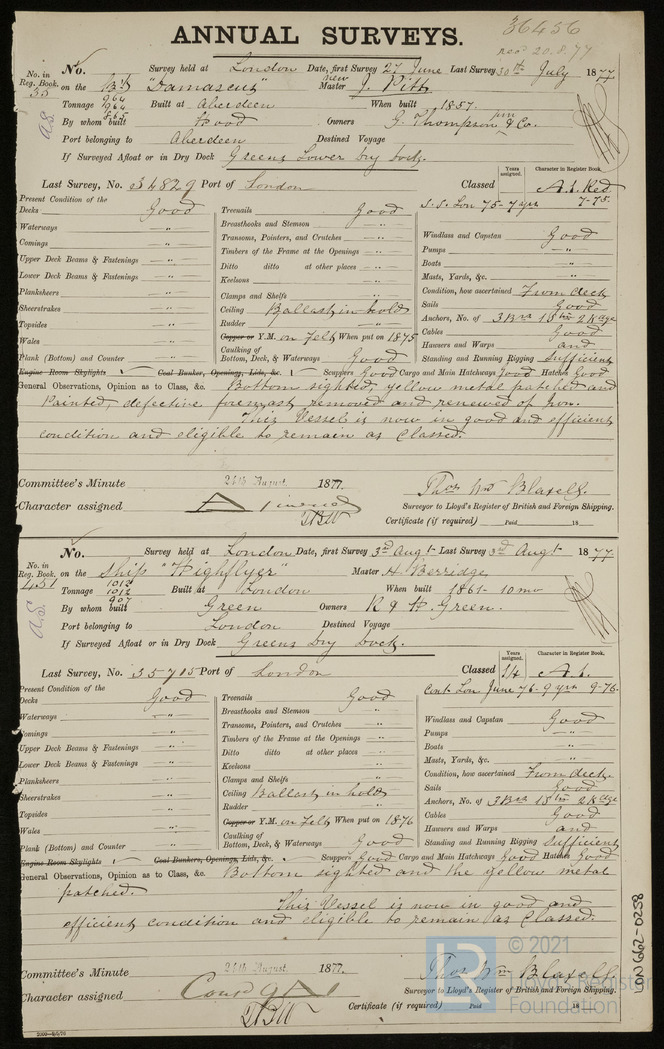 36456
rec'd 20.8.77
ANNUAL SURVEYS.
No. Survey held at London Date, first Survey 27 June Last Survey 30th July 1877
No. in Reg. Book. 35 on the "Damascus" new Master J. Pitt
Tonnage 964 964 865 Built at Aberdeen When built 1857.
By whom built Hood Owners G. Thompson jun & Co.
Port belonging to Aberdeen Destined Voyage
If Surveyed Afloat or in Dry Dock Greens Lower Dry Dock.
Last Survey, No. 34829 Port of London Classed
Years assigned. Character in Register Book.
A.1. Red
S.S. Lon 75-7 yrs 7-75.
Present Condition of the
Decks Good
Waterways "
Comings "
Upper Deck Beams & Fastenings "
Lower Deck Beams & Fastenings "
Planksheers "
Sheerstrakes "
Topsides "
Wales "
Plank (Bottom) and Counter "
Treenails Good
Breasthooks and Stemson "
Transoms, Pointers, and Crutches "
Timbers of the Frame at the Openings "
Ditto ditto at other places "
Keelsons "
Clamps and Shelfs "
Ceiling Ballast in hold
Rudder "
Copper or Y.M. on Felt When put on 1875
Caulking of Bottom, Deck, & Waterways Good
Windlass and Capstan Good
Pumps "
Boats "
Masts, Yards, &c. "
Condition, how ascertained From deck
Sails Good
Anchors, No. of 3 Brs 1 Stm 2 Kdge
Cables Good
Hawsers and Warps and
Standing and Running Rigging Sufficient
Engine Room Skylights Coal Bunker, Openings, Lids, &c. Scuppers Good Cargo and Main Hatchways Good Hatches Good
General Observations, Opinion as to Class, &c. Bottom sighted, yellow metal patched and
painted, defective foremast removed and renewed of Iron.
This Vessel is now in good and efficient
condition and eligible to remain as Classed.
Committee's Minute 24th August 1877.
Thos Wm Blaxell.
Surveyor to Lloyd's Register of British and Foreign Shipping.
Character assigned A 1 in red
Certificate (if required) Paid 18
No. Survey held at London Date, first Survey 3rd Augt Last Survey 3rd Augt 1877
No. in Reg. Book. 451 on the Ship "Highflyer" Master H Berridge
Tonnage 1012 1012 907 Built at London When built 1861-10mo
By whom built Green Owners R & H. Green.
Port belonging to London Destined Voyage
If Surveyed Afloat or in Dry Dock Greens Dry Dock.
Last Survey, No. 35715 Port of London Classed
Years assigned. Character in Register Book.
14 A.1.
Cont. Lon June 76-9 yrs 9-76.
Present Condition of the
Decks Good
Waterways "
Comings "
Upper Deck Beams & Fastenings "
Lower Deck Beams & Fastenings "
Planksheers "
Sheerstrakes "
Topsides "
Wales "
Plank (Bottom) and Counter "
Treenails Good
Breasthooks and Stemson "
Transoms, Pointers, and Crutches "
Timbers of the Frame at the Openings "
Ditto ditto at other places "
Keelsons "
Clamps and Shelfs "
Ceiling Ballast in hold
Rudder "
Copper or Y.M. on Felt When put on 1876
Caulking of Bottom, Deck, & Waterways Good
Windlass and Capstan Good
Pumps "
Boats "
Masts, Yards, &c. "
Condition, how ascertained From deck.
Sails Good
Anchors, No. of 3 Brs 1 Stm 2 Kdge
Cables Good
Hawsers and Warps and
Standing and Running Rigging Sufficient
Engine Room Skylights Coal Bunkers, Openings, Lids, &c. Scuppers Good Cargo and Main Hatchways Good Hatches Good
General Observations, Opinion as to Class, &c. Bottom sighted and the yellow metal
patched.
This Vessel is now in good and
efficient condition and eligible to remain as Classed.
Committee's Minute 24th August 1877.
Thos Wm Blaxell.
Surveyor to Lloyd's Register of British and Foreign Shipping.
Character assigned
Certificate (if required) Paid 18
2000-8/5/76
LR © 2021
Lloyd's Register
Foundation
LN662-0258